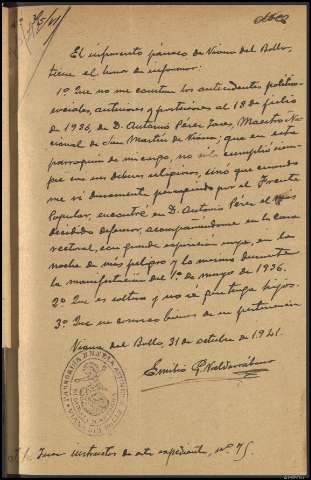 El infrascrito párroco de Viana del Bollo,
tiene el honor de informar:
1º. Que no me constan los antecedentes político-
sociales, anteriores y posteriores al 18 de julio
de 1936, de D. Antonio Pérez, Maestro Na-
cional de San Martín de Viana; que en esta
parroquia de mi cargo, no sólo cumplió siem-
pre con sus deberes religiosos, sinó que cuando
me ví duramente perseguido por el Frente
Popular, encontré en D. Antonio Pérez el más
decidido defensor, acompañándome en la casa
rectoral, con grande exposición suya, en la
noche de más peligro y lo mismo durante
la manifestación del 1º de mayo de 1936.
2º. Que es soltero y no sé que tenga hijos.
3º. Que no conozco bienes de su pertenencia
Viana del Bollo, 31 de octubre de 1941.
Emilio
Sr. Juez instructor de este expediente, nº 75.